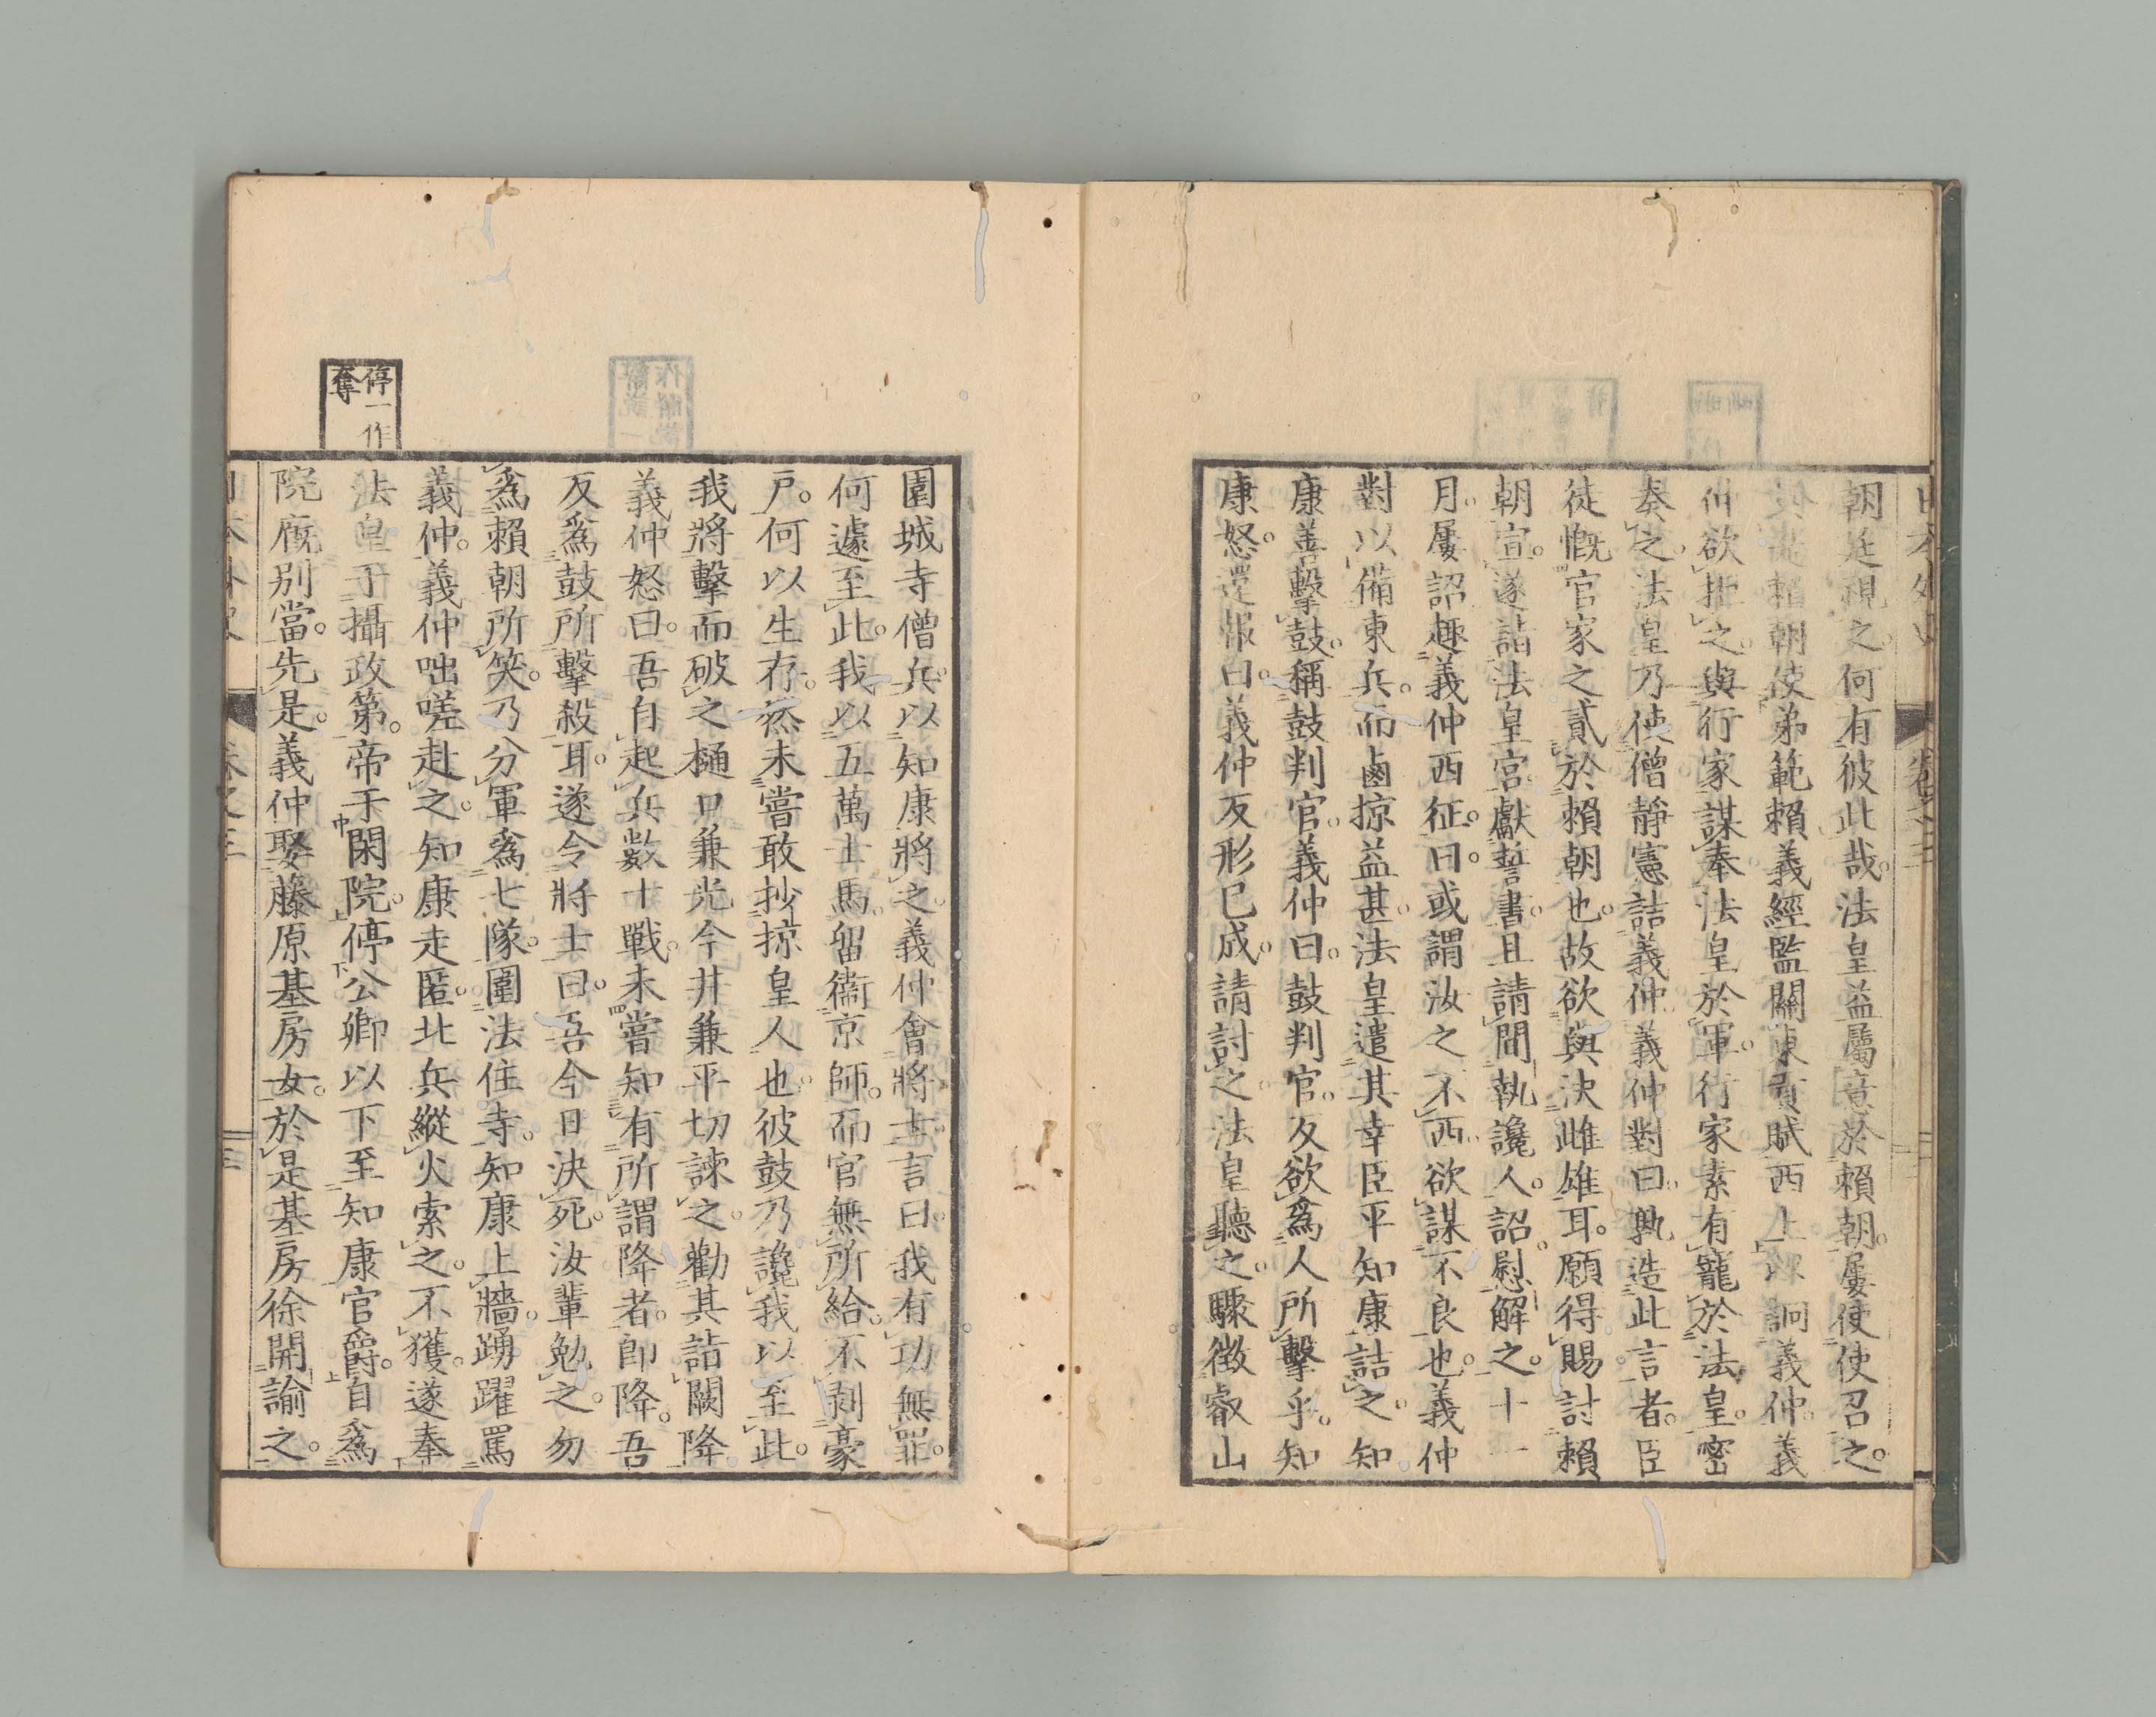 朝廷視之。何有彼此哉。法皇益屬意於賴朝。屢使使召之。
賴朝使弟範賴義經監關東貢賦西上以詗義仲。義
仲欲拒之。與行家謀奉法皇於軍。行家素有寵於法皇。密
奏之。法皇乃使僧靜憲詰義仲。義仲對曰。孰造此言者。臣
徒慨官家之貳於賴朝也。故欲與決雌雄耳。願得賜討賴
朝宣。遂詣法皇宮獻誓書。且請間執讒人。詔慰解之。十一
月。屢詔趣義仲西征。曰。或謂汝之不西。欲謀不良也。義仲
對以備東兵。而鹵掠益甚。法皇遣其幸臣平知康詰之。知
康善擊鼓。稱鼓判官。義仲曰。鼓判官。又欲爲人所擊乎。知
康怒。還報曰。義仲反形已成。請討之。法皇聽之。驟徵叡山
園城寺僧兵。以知康將之。義仲會將士言曰。我有功無罪。
何遽至此。我以五萬士馬。留衞京師。而官無所給。不剥豪
戶。何以生存。然未嘗敢抄掠皇人也。彼鼓乃讒我以至此。
我將擊而破之。樋口兼光今井兼平切諫之。勸其詣闕降
義仲怒曰。吾自起兵數十戰。未嘗知有所謂降者。卽降。吾
反爲鼓所擊殺耳。遂令將士曰。吾今日決死。汝輩勉之。勿
爲賴朝所笑。乃分軍爲七隊。圍法住寺。知康上牆。踴躍罵
義仲。義仲咄嗟赴之。知康走匿。北兵縱火索之。不獲。遂奉
法皇于攝政第。帝于閑院。停公卿以下至知康官爵。自爲
院廐別當。先是。義仲娶藤原基房女。於是基房徐開諭之。
停一作
奪